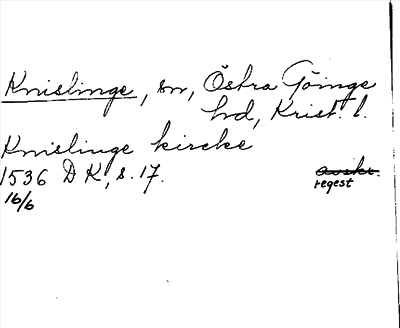 Knislinge, sn, Östra Göinge
hd, Krist. l.
Knislinge kircke
1536 DK, s. 17.
16/6
avskr.
regest